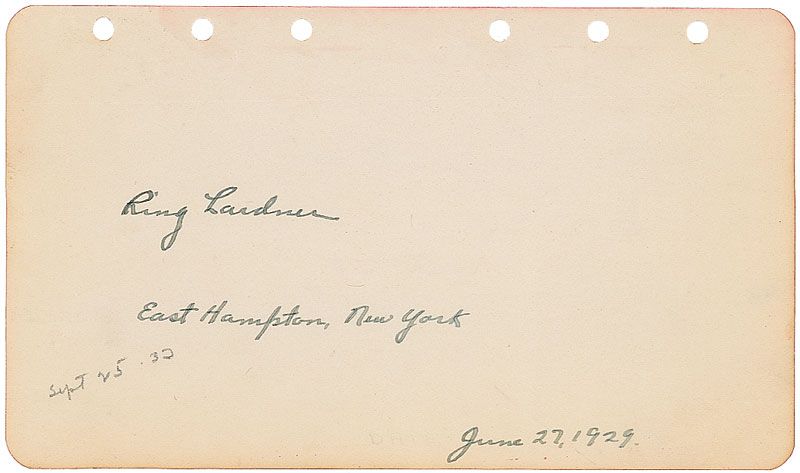 Ring Lardner
East Hampton, New York
Sept 25
June 27, 1929.